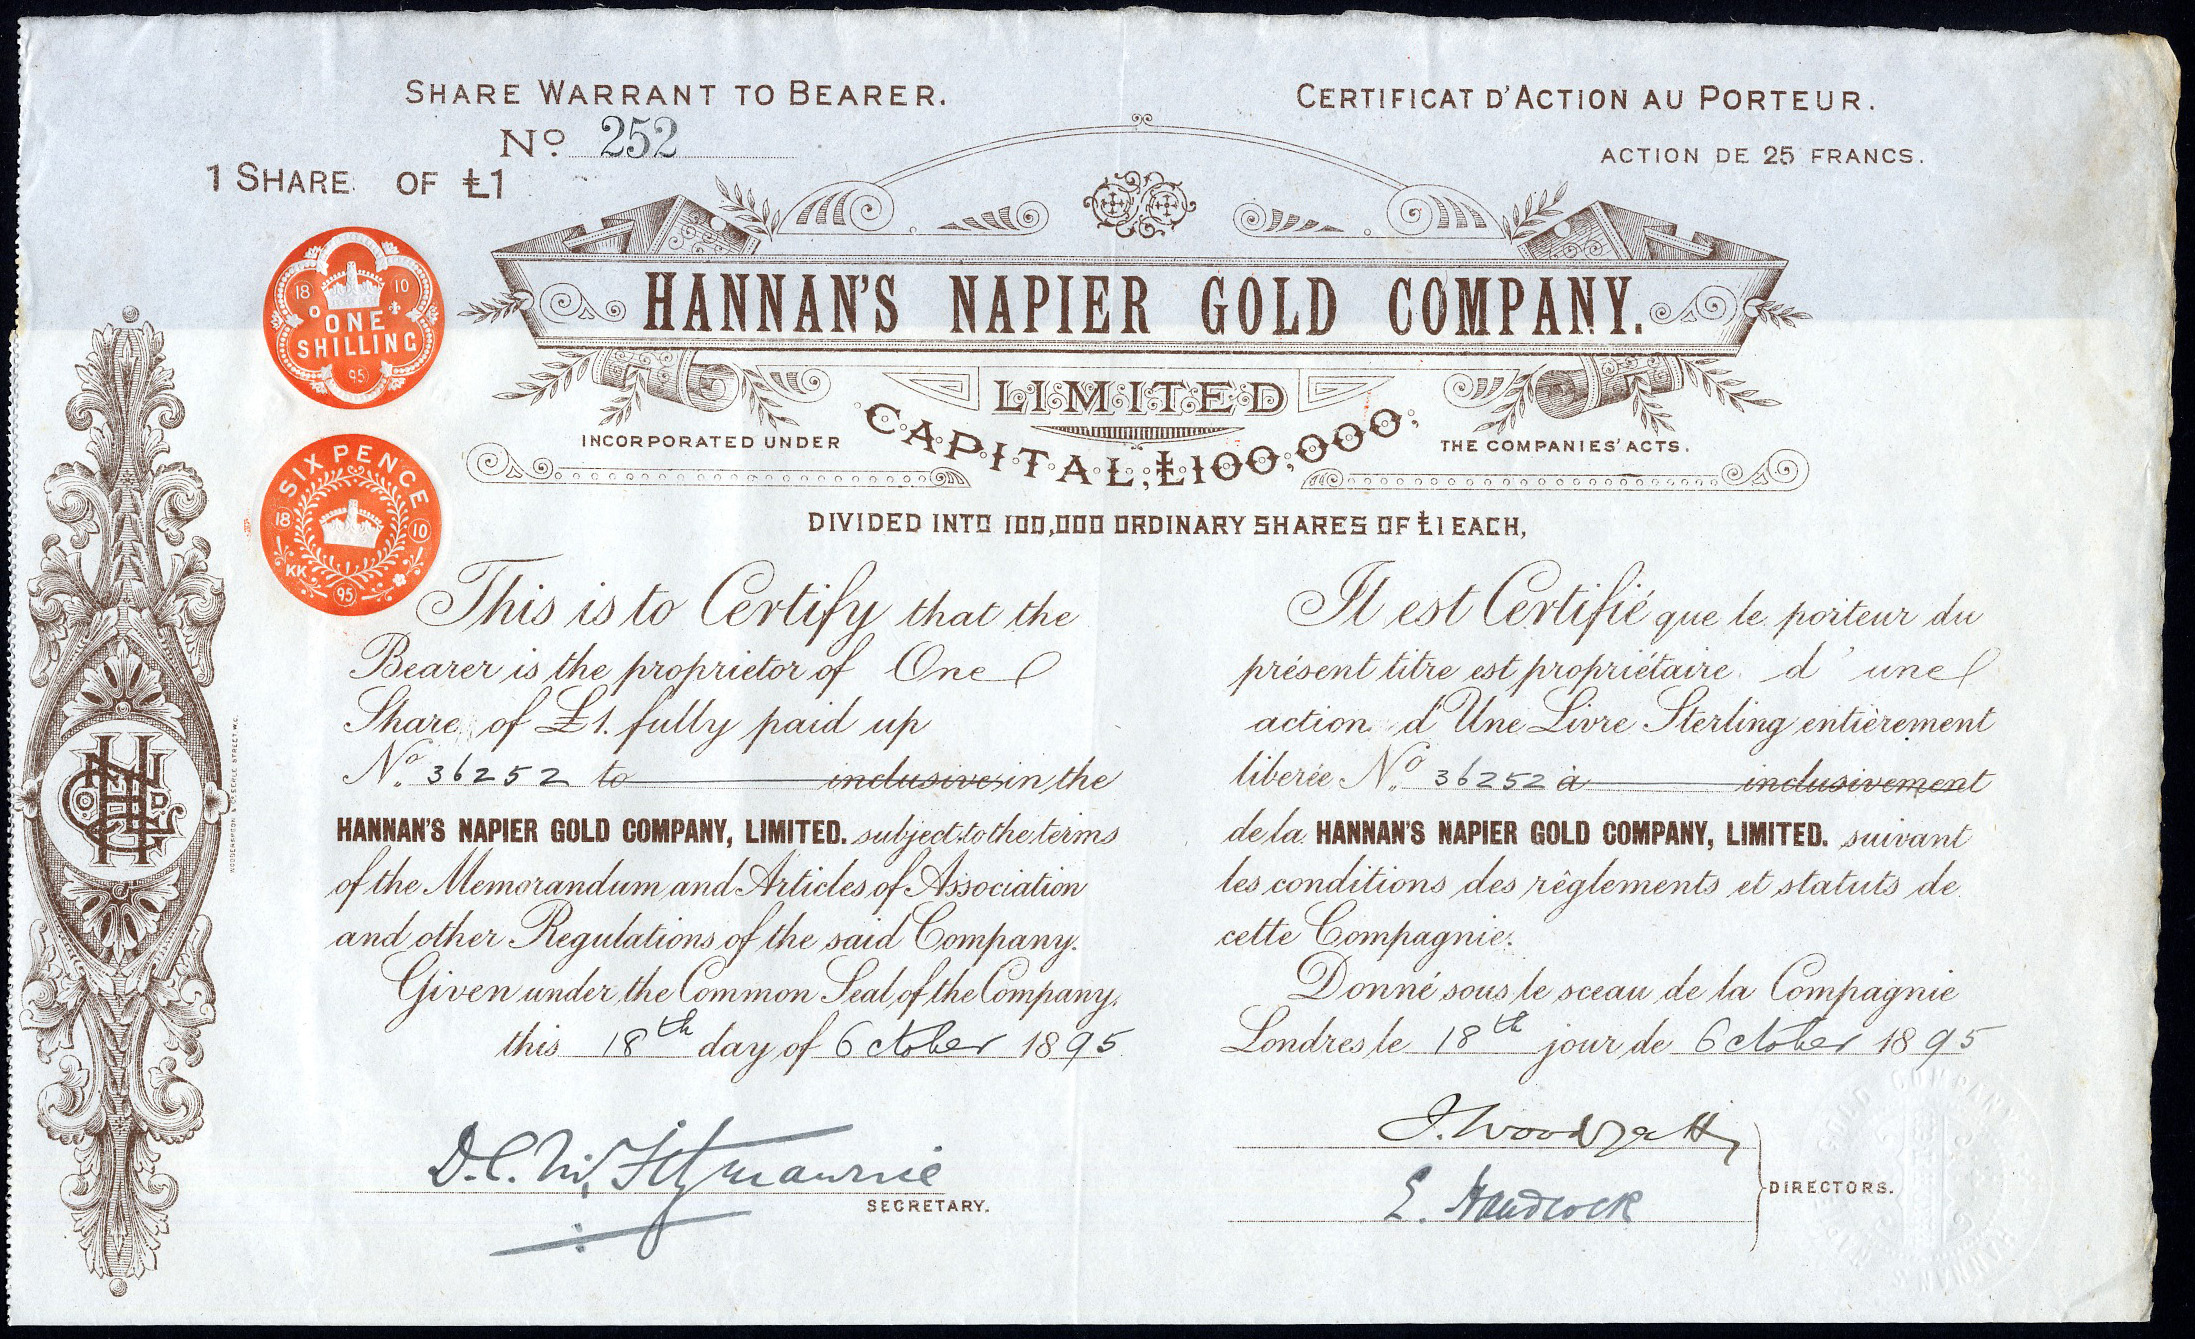 SHARE WARRANT TO BEARER.
No 252
1 SHARE OF £1
CERTIFICAT D'ACTION AU PORTEUR.
ACTION DE 25 FRANCS.
18 10
ONE
SHILLING
95
SIX PENCE
18 10
KK
95
HANNAN'S NAPIER GOLD COMPANY.
LIMITED
INCORPORATED UNDER THE COMPANIES' ACTS.
CAPITAL, £100,000.
DIVIDED INTO 100,000 ORDINARY SHARES OF £1 EACH,
This is to Certify that the
Bearer is the proprietor of One
Share of £1. fully paid up
No. 36252 to inclusive in the
HANNAN'S NAPIER GOLD COMPANY, LIMITED. subject to the terms
of the Memorandum and Articles of Association
and other Regulations of the said Company.
Given under the Common Seal of the Company,
this 18th day of October 1895
D.C. Fitzmaurice
SECRETARY.
Il est Certifié que le porteur du
présent titre est propriétaire d'une
action d'Une Livre Sterling entièrement
liberée No. 36252 à inclusivement
de la HANNAN'S NAPIER GOLD COMPANY, LIMITED. suivant
les conditions des règlements et statuts de
cette Compagnie.
Donné sous le sceau de la Compagnie
Londres le 18th jour de October 1895
E. Handcock
DIRECTORS.
GOLD COMPANY
HANNAN'S